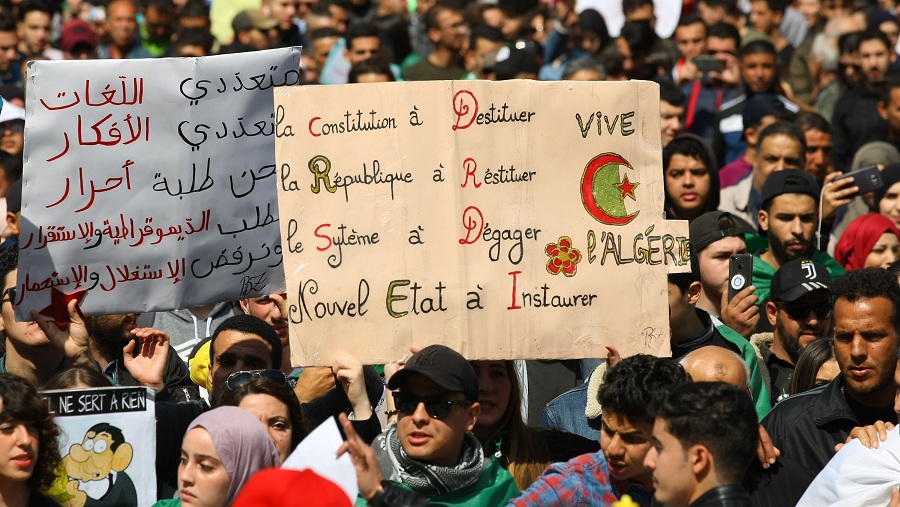 متعدّدي اللّغات
تعدّدي الأفكار
حن طلبة أحرار
طلب الدّيموقراطية والإستقرار
ونرفض الإستغلال والإستعمار
la Constitution à Destituer
la République à Réstituer
le Sytème à Dégager
Nouvel Etat à Instaurer
VIVE
l'ALGÉRIE
L NE SERT A RIEN